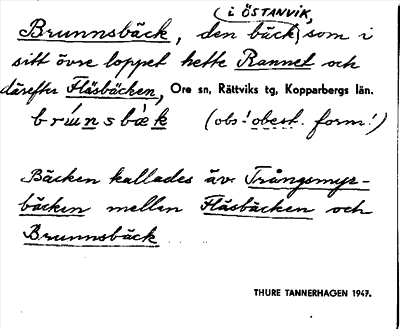 (i ÖSTANVIK,
Brunnsbäck, den bäck) som i
sitt övre loppet hette Rannel och
därefter Fläsbäcken, Ore sn, Rättviks tg, Kopparbergs län.
(obs! obest. form!)
Bäcken kallades äv. Trångsmyr-
bäcken mellan Fläsbäcken och
Brunnsbäck
THURE TANNERHAGEN 1947.